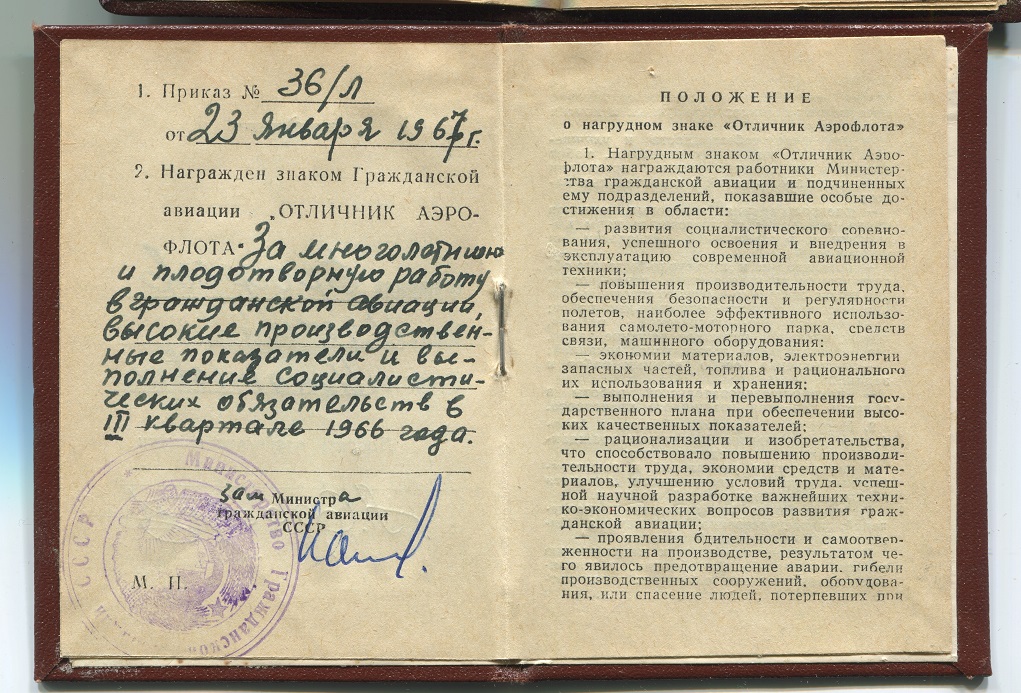 1. Приказ № 36/Л
от 23 Января 1967 г.
2. Награжден знаком Гражданской
авиации „ОТЛИЧНИК АЭРО-
ФЛОТА" За многолетнюю
и плодотворную работу
в гражданской авиации,
высокие производствен-
ные показатели и вы-
полнение социалисти-
ческих обязательств в
III квартале 1966 года.
зам Министра
гражданской авиации
СССР
М. П.
Министерство Гражданской
СССР
ПОЛОЖЕНИЕ
о нагрудном знаке «Отличник Аэрофлота»
1. Нагрудным знаком «Отличник Аэро-
флота» награждаются работники Министер-
ства гражданской авиации и подчиненных
ему подразделений, показавшие особые до-
стижения в области:
— развития социалистического соревно-
вания, успешного освоения и внедрения в
эксплуатацию современной авиационной
техники;
— повышения производительности труда,
обеспечения безопасности и регулярности
полетов, наиболее эффективного использо-
вания самолето-моторного парка, средств
связи, машинного оборудования:
— экономии материалов, электроэнергии
запасных частей, топлива и рационального
их использования и хранения;
— выполнения и перевыполнения госу-
дарственного плана при обеспечении высо-
ких качественных показателей;
— рационализации и изобретательства,
что способствовало повышению производи-
тельности труда, экономии средств и мате-
риалов, улучшению условий труда. успеш-
ной научной разработке важнейших техни-
ко-экономических вопросов развития граж-
данской авиации;
— проявления бдительности и самоотвер-
женности на производстве, результатом че-
го явилось предотвращение аварии. гибели
производственных сооружений, оборудова-
ния, или спасение людей, потерпевших при